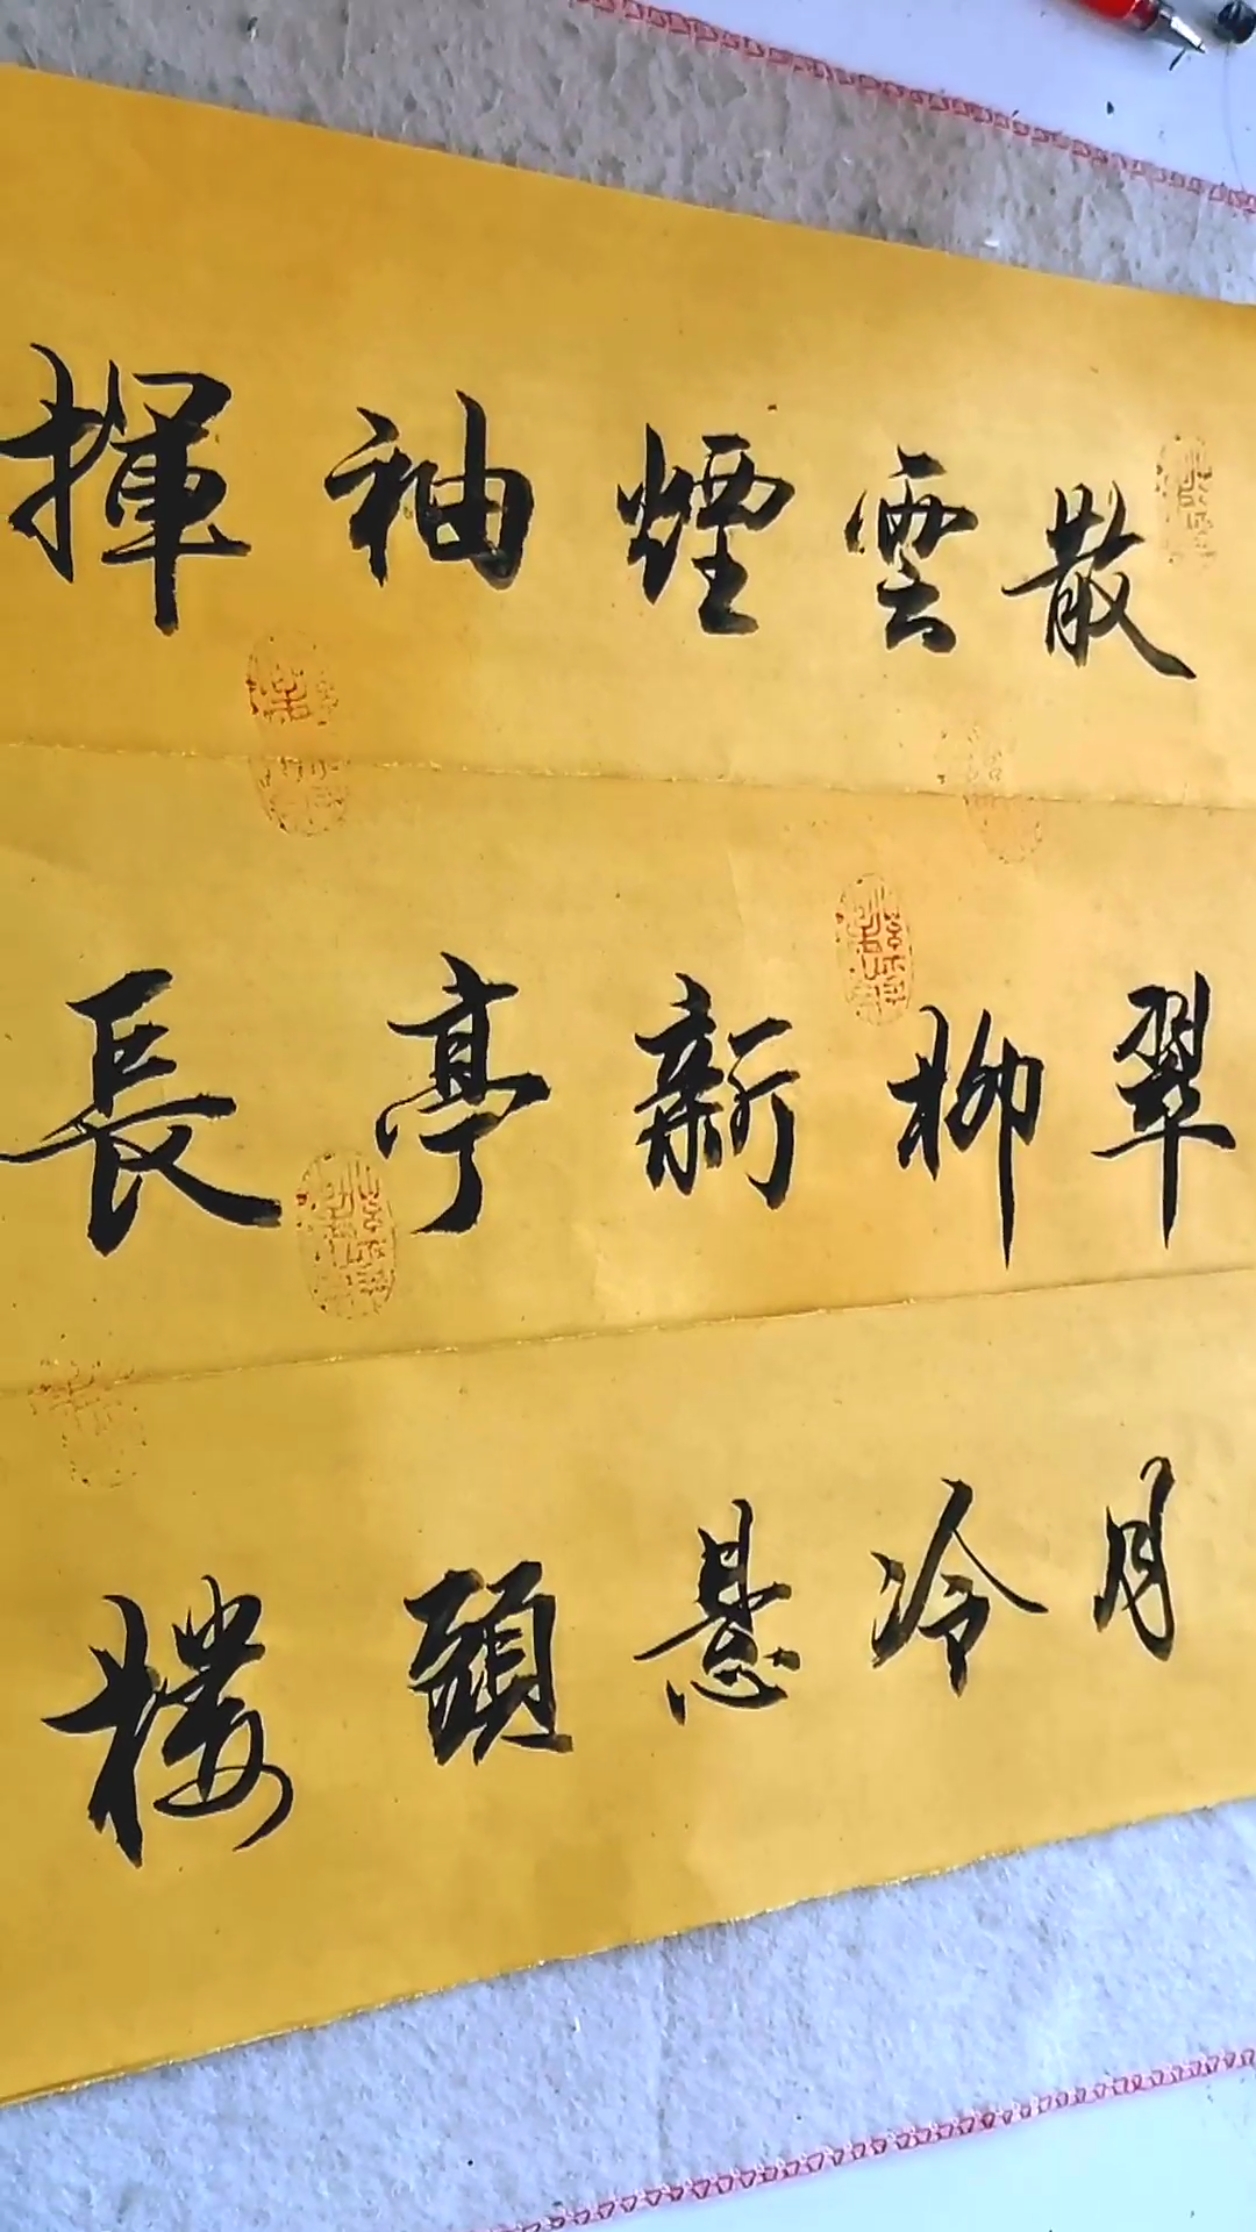 揮袖煙雲散
長亭新柳翠
樓頭懸冷月